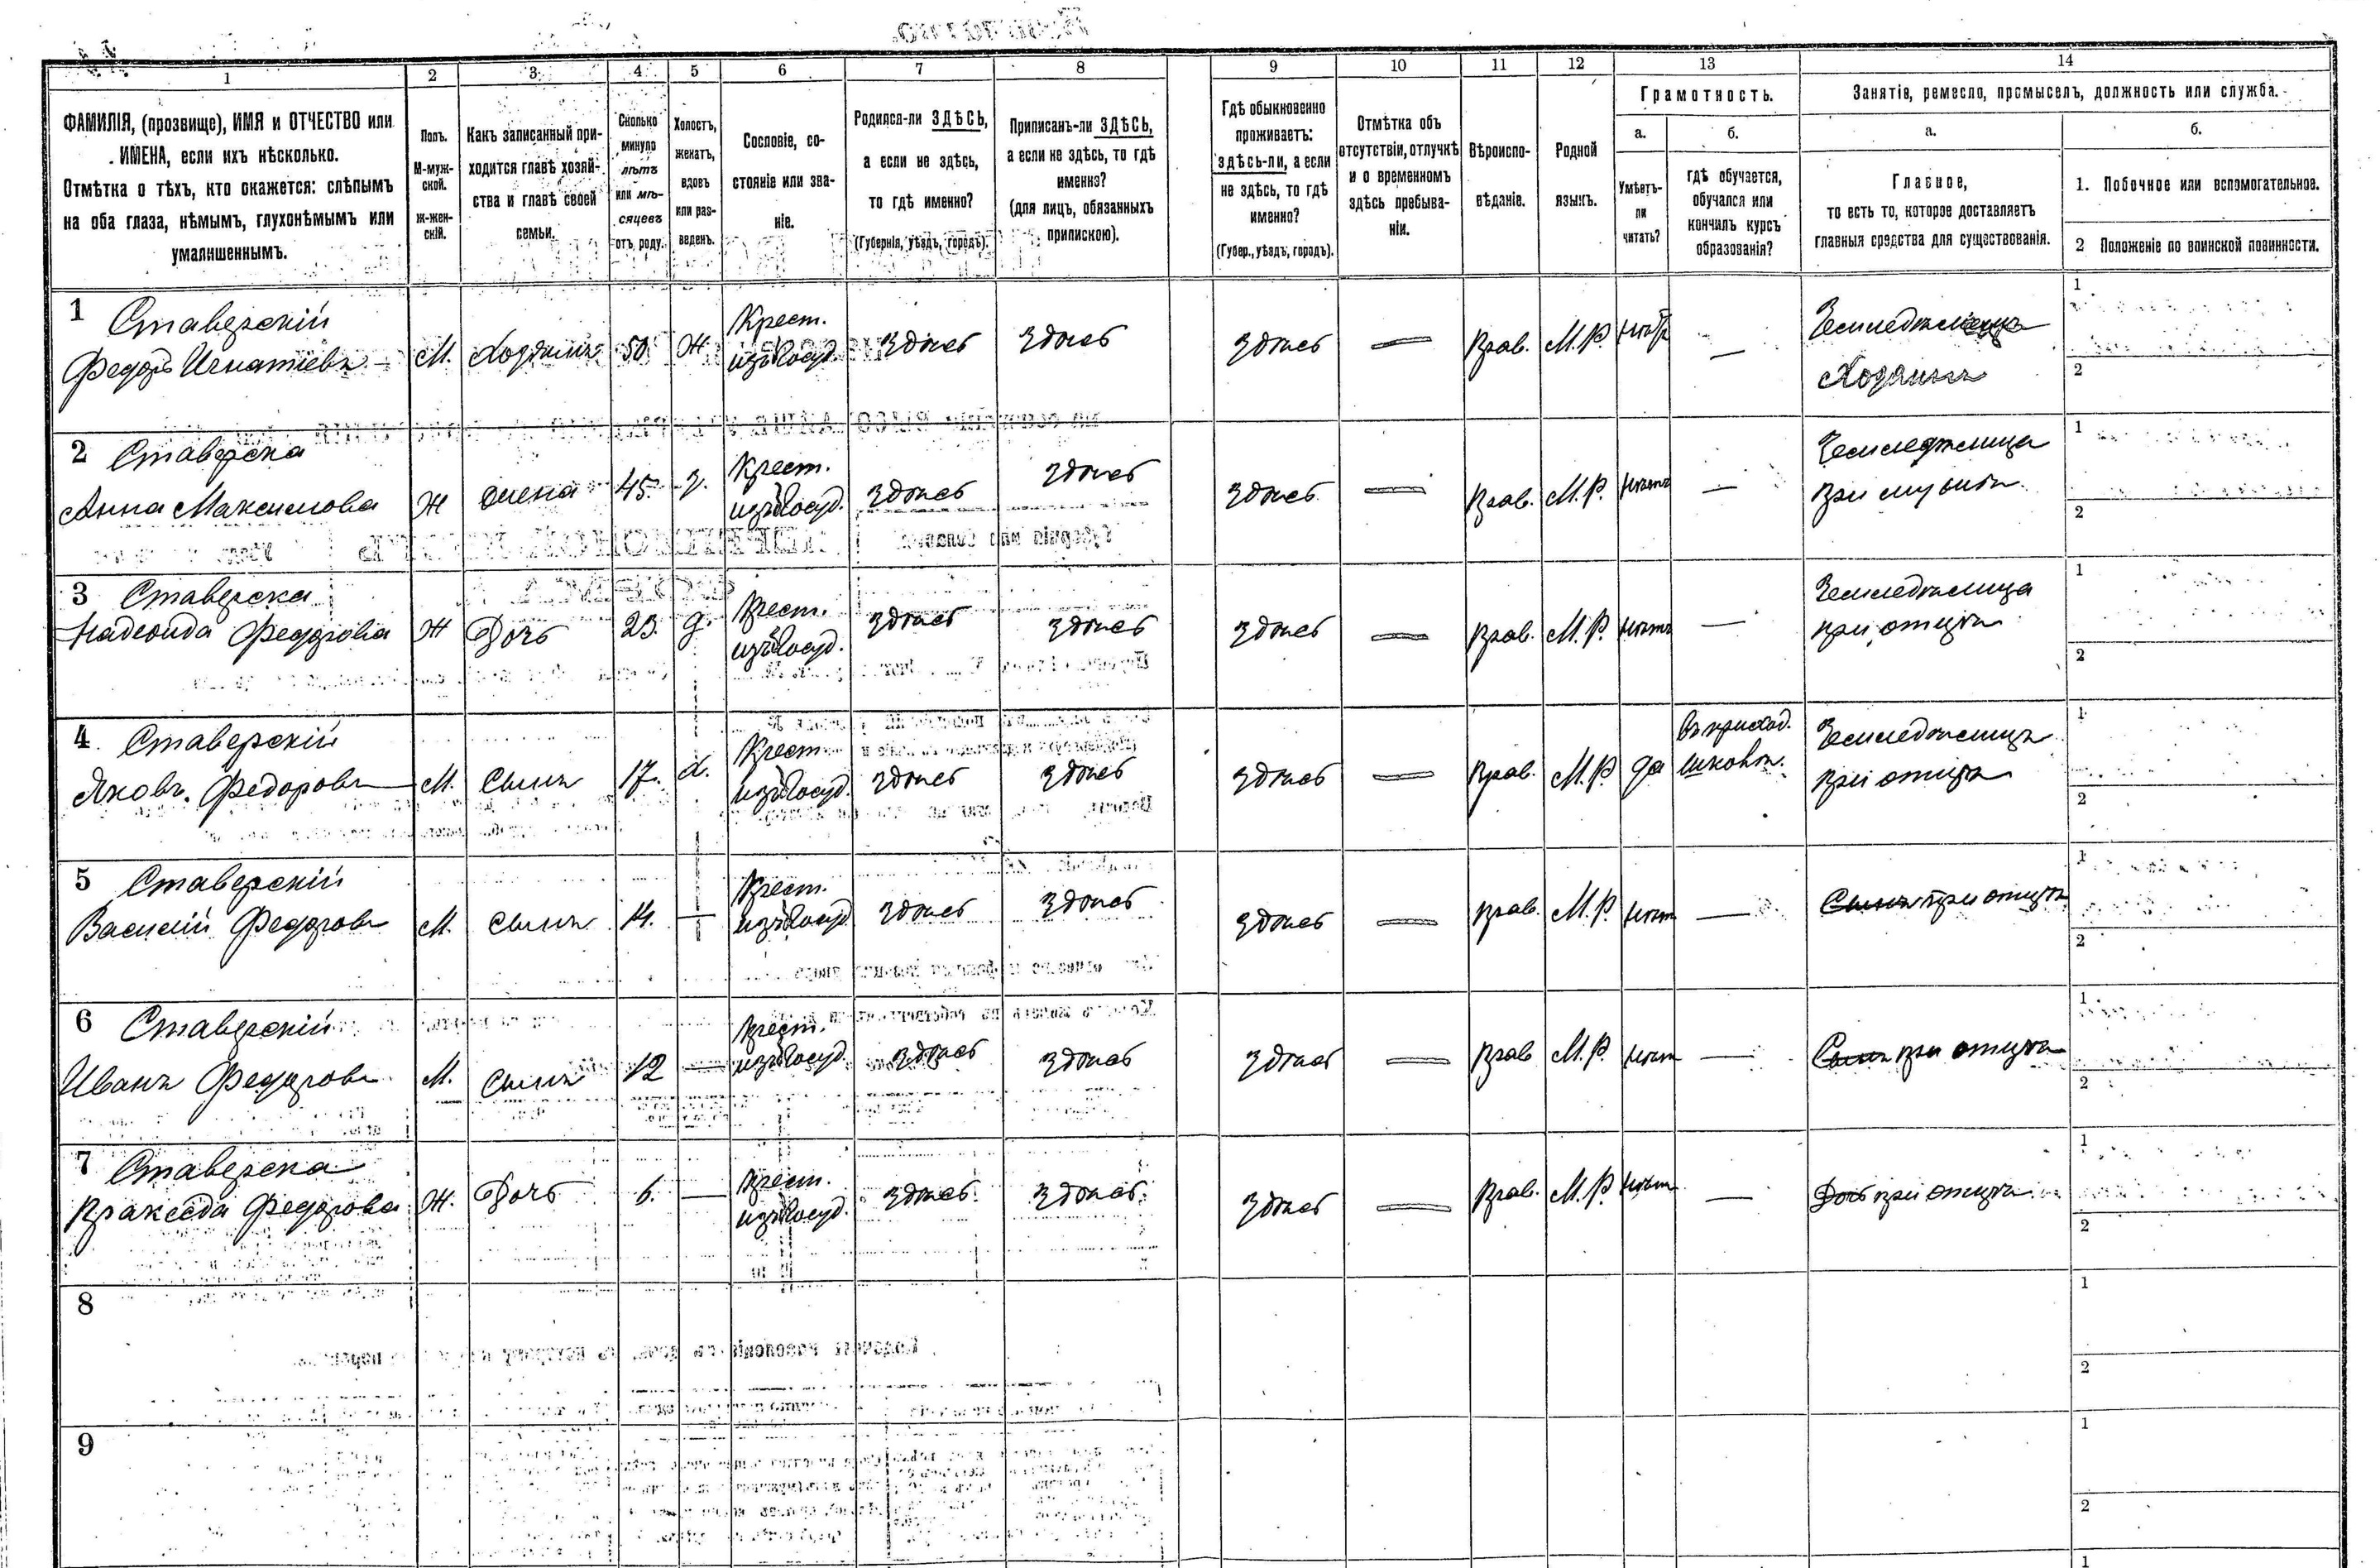 1
2
3
4
5
6
7
8
9
10
11
12
13
14
ФАМИЛІЯ, (прозвище), ИМЯ и ОТЧЕСТВО или
ИМЕНА, если ихъ нѣсколько.
Отмѣтка о тѣхъ, кто окажется: слѣпымъ
на оба глаза, нѣмымъ, глухонѣмымъ или
умалишеннымъ.
Полъ.
М-муж-
ской.
ж-жен-
скій.
Какъ записанный при-
ходится главѣ хозяй-
ства и главѣ своей
семьи.
Сколько
минуло
лѣтъ
или мѣ-
сяцевъ
отъ роду.
Холостъ,
женатъ,
вдовъ
или раз-
веденъ.
Сословіе, со-
стояніе или зва-
ніе.
Родился-ли ЗДѢСЬ,
а если не здѣсь,
то гдѣ именно?
(Губернія, уѣздъ, городъ).
Приписанъ-ли ЗДѢСЬ,
а если не здѣсь, то гдѣ
именно?
(для лицъ, обязанныхъ
припискою).
Гдѣ обыкновенно
проживаетъ:
здѣсь-ли, а если
не здѣсь, то гдѣ
именно?
(Губер., уѣздъ, городъ).
Отмѣтка объ
отсутствіи, отлучкѣ
и о временномъ
здѣсь пребыва-
ніи.
Вѣроиспо-
вѣданіе.
Родной
языкъ.
Грамотность.
а.
Умѣетъ-
ли
читать?
б.
гдѣ обучается,
обучался или
кончилъ курсъ
образованія?
Занятіе, ремесло, промыселъ, должность или служба.
а.
Главное,
то есть то, которое доставляетъ
главныя средства для существованія.
б.
1. Побочное или вспомогательное.
2 Положеніе по воинской повинности.
1 Ставерскій
Федоръ Игнатіевъ
М.
Хозяинъ
50
Ж
Крест.
изъ Госуд.
Здѣсь
Здѣсь
Здѣсь
—
Прав.
М.Р.
нѣтъ
—
Земледѣлецъ
Хозяинъ
1
2
2 Ставерска
Анна Максимова
Ж
жена
45
з.
Крест.
изъ Госуд.
Здѣсь
Здѣсь
Здѣсь
—
Прав.
М.Р.
нѣтъ
—
Земледѣлица
при мужѣ
1
2
3 Ставерска
Надежда Федорова
Ж
Дочь
23.
д.
Крест.
изъ Госуд.
Здѣсь
Здѣсь
Здѣсь
—
Прав.
М.Р.
нѣтъ
—
Земледѣлица
при отцѣ
1
2
4 Ставерскій
Яковъ Федоровъ
М.
Сынъ
17.
х.
Крест.
изъ Госуд.
Здѣсь
Здѣсь
Здѣсь
—
Прав.
М.Р.
да
въ приход.
школѣ.
Земледѣлецъ
при отцѣ
1
2
5 Ставерскій
Василій Федоровъ
М.
Сынъ
14.
—
Крест.
изъ Госуд.
Здѣсь
Здѣсь
Здѣсь
—
Прав.
М.Р.
нѣтъ
—
Сынъ при отцѣ
1
2
6 Ставерскій
Иванъ Федоровъ
М.
Сынъ
12
—
Крест.
изъ Госуд.
Здѣсь
Здѣсь
Здѣсь
—
Прав
М.Р.
нѣтъ
—
Сынъ при отцѣ
1
2
7 Ставерска
Пракседа Федорова
Ж.
Дочь
6.
—
Крест.
изъ Госуд.
Здѣсь
Здѣсь
Здѣсь
—
Прав.
М.Р.
нѣтъ
—
Дочь при отцѣ
1
2
8
1
2
9
1
2
1